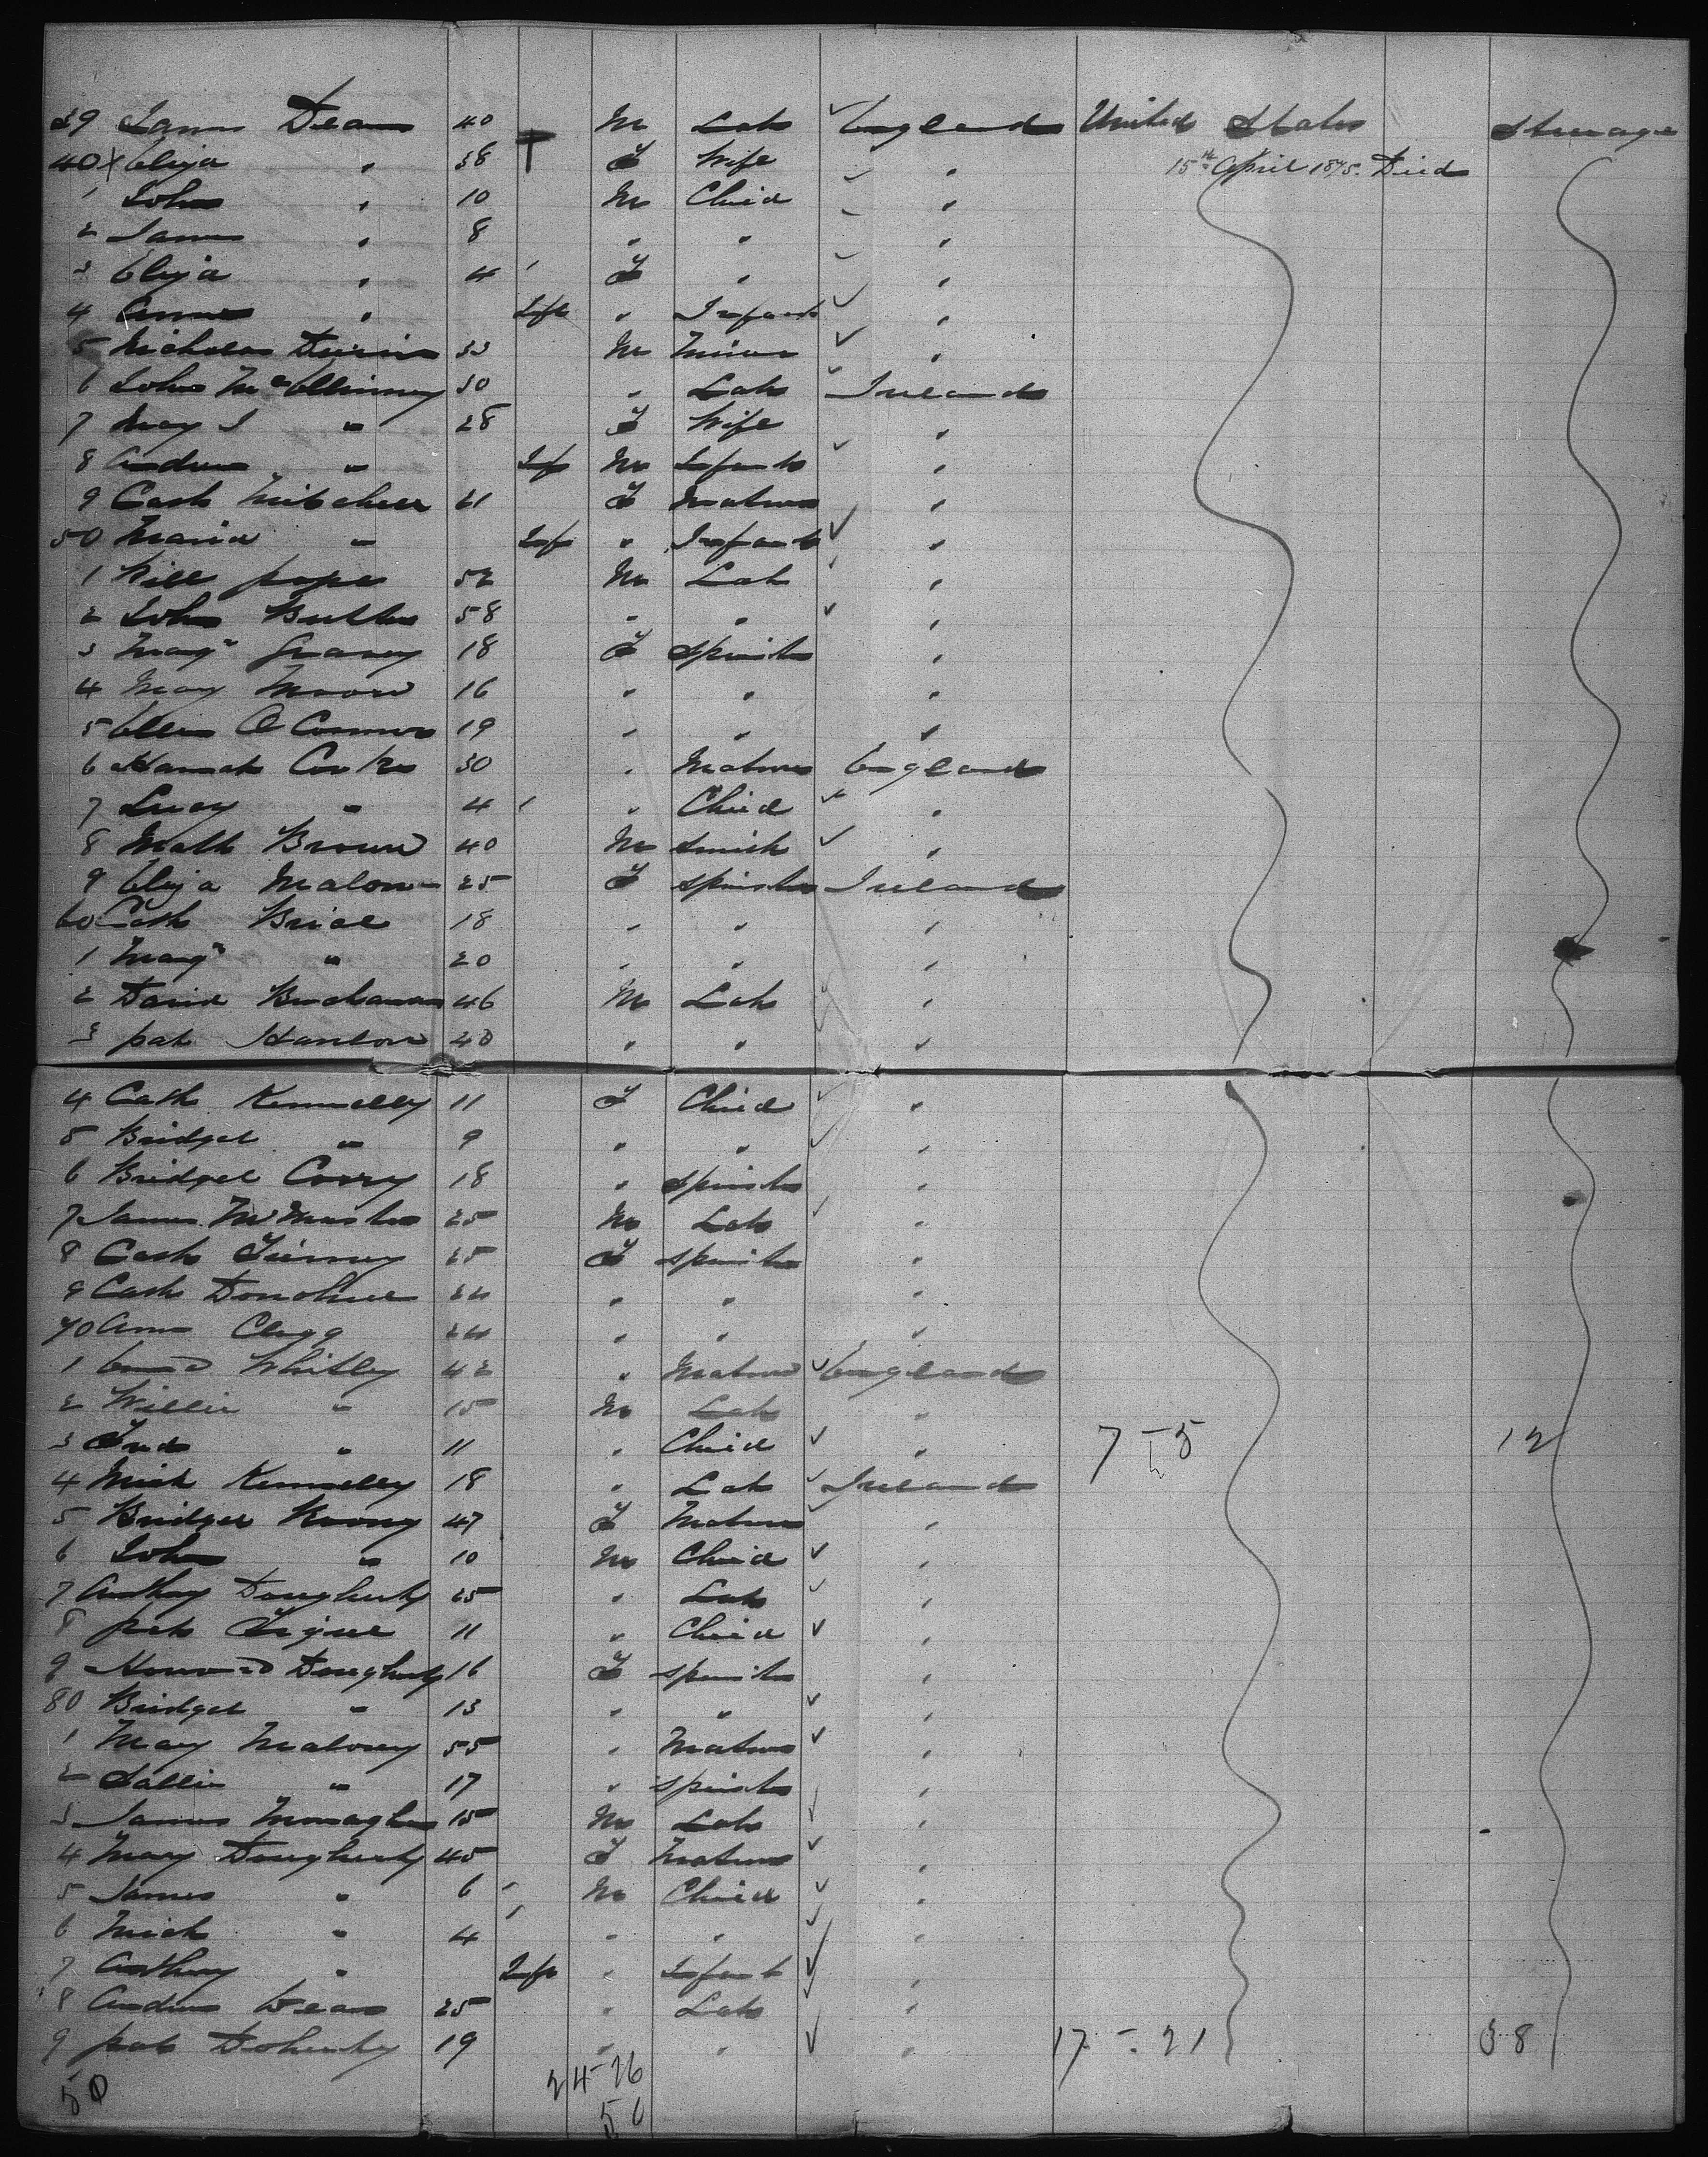 39 James Dean 40 M Lab ✓ England United States Steerage
40 X Eliza " 38 F Wife ✓ " 15th April 1875. Died
1 John " 10 M Child "
2 James " 8 " " "
3 Eliza " 4 F " ✓ "
4 Anne " Inft " Infant ✓ "
5 Nicholas 33 M Miner ✓ "
6 John 30 " Lab Ireland
7 Mary J " 28 F Wife "
8 Andrew " Inf M Infant ✓ "
9 Cath Mitchell 21 F Matron "
50 Maria " Inf " Infant ✓ "
1 Will pope 52 M Lab "
2 John Butler 58 " " ✓ "
3 Margt 18 F Spinster "
4 Mary Moore 16 " " "
5 Ellen O Connor 19 " " "
6 Hannah 30 " Matron England
7 Lucy " 4 " Child ✓ "
8 Matt Brown 40 M Smith ✓ "
9 Eliza Malone 25 F Spinster Ireland
60 Cath 18 " " "
1 Margt " 20 " " "
2 David Buchanan 46 M Lab "
3 pat Hanlon 40 " " "
4 Cath Kennelly 11 F Child ✓ "
5 Bridget " 9 " " ✓ "
6 Bridget Corry 18 " Spinster "
7 James McMaster 25 M Lab "
8 Cath Tierney 25 F Spinster "
9 Cath Donohue 24 " " "
70 Ann Clegg 24 " " "
1 Whitley 42 " Matron ✓ England
2 Willie " 15 M Lab "
3 Fred " 11 " Child ✓ " 7 - 5 12
4 Mich Kennelly 18 " Lab ✓ Ireland
5 Bridget 47 F Matron "
6 John " 10 M Child ✓ "
7 Anthony Dougherty 25 " Lab ✓ "
8 pat Tigue 11 " Child ✓ "
9 Dougherty 16 F Spinster "
80 Bridget " 13 " " ✓ "
1 Mary Maloney 55 " Matron ✓ "
2 Sallie " 17 " Spinster "
3 James Monaghan 15 M Lab ✓ "
4 Mary Dougherty 45 F Matron ✓ "
5 James " 6 M Child ✓ "
6 Mich " 4 " " ✓ "
7 Anthony " Inft " Infant ✓ "
8 Andrew 25 " Lab ✓ "
9 pat Doherty 19 " " ✓ " 17 - 21 38
50 24-26
50